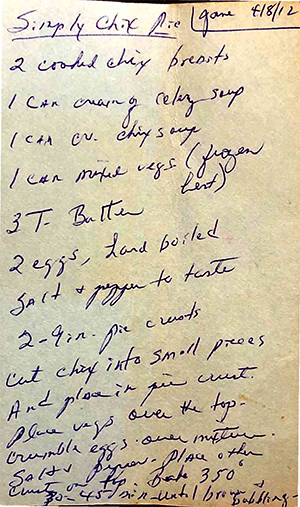 Simply Chix Pie
Jane 4/8/12
2 cooked chix breasts
1 can cream of celery soup
1 can cr. chix soup
1 can mixed vegs (frozen
best)
3 T. Butter
2 eggs, hard boiled
Salt & pepper to taste
2-9 in. pie crusts
Cut chix into small pieces
And place in pie crust.
Place vegs over the top.
Crumble eggs over mixture.
Salt & pepper. Place other
crust on top. Bake 350°
30-45 min until brown & bubbling-